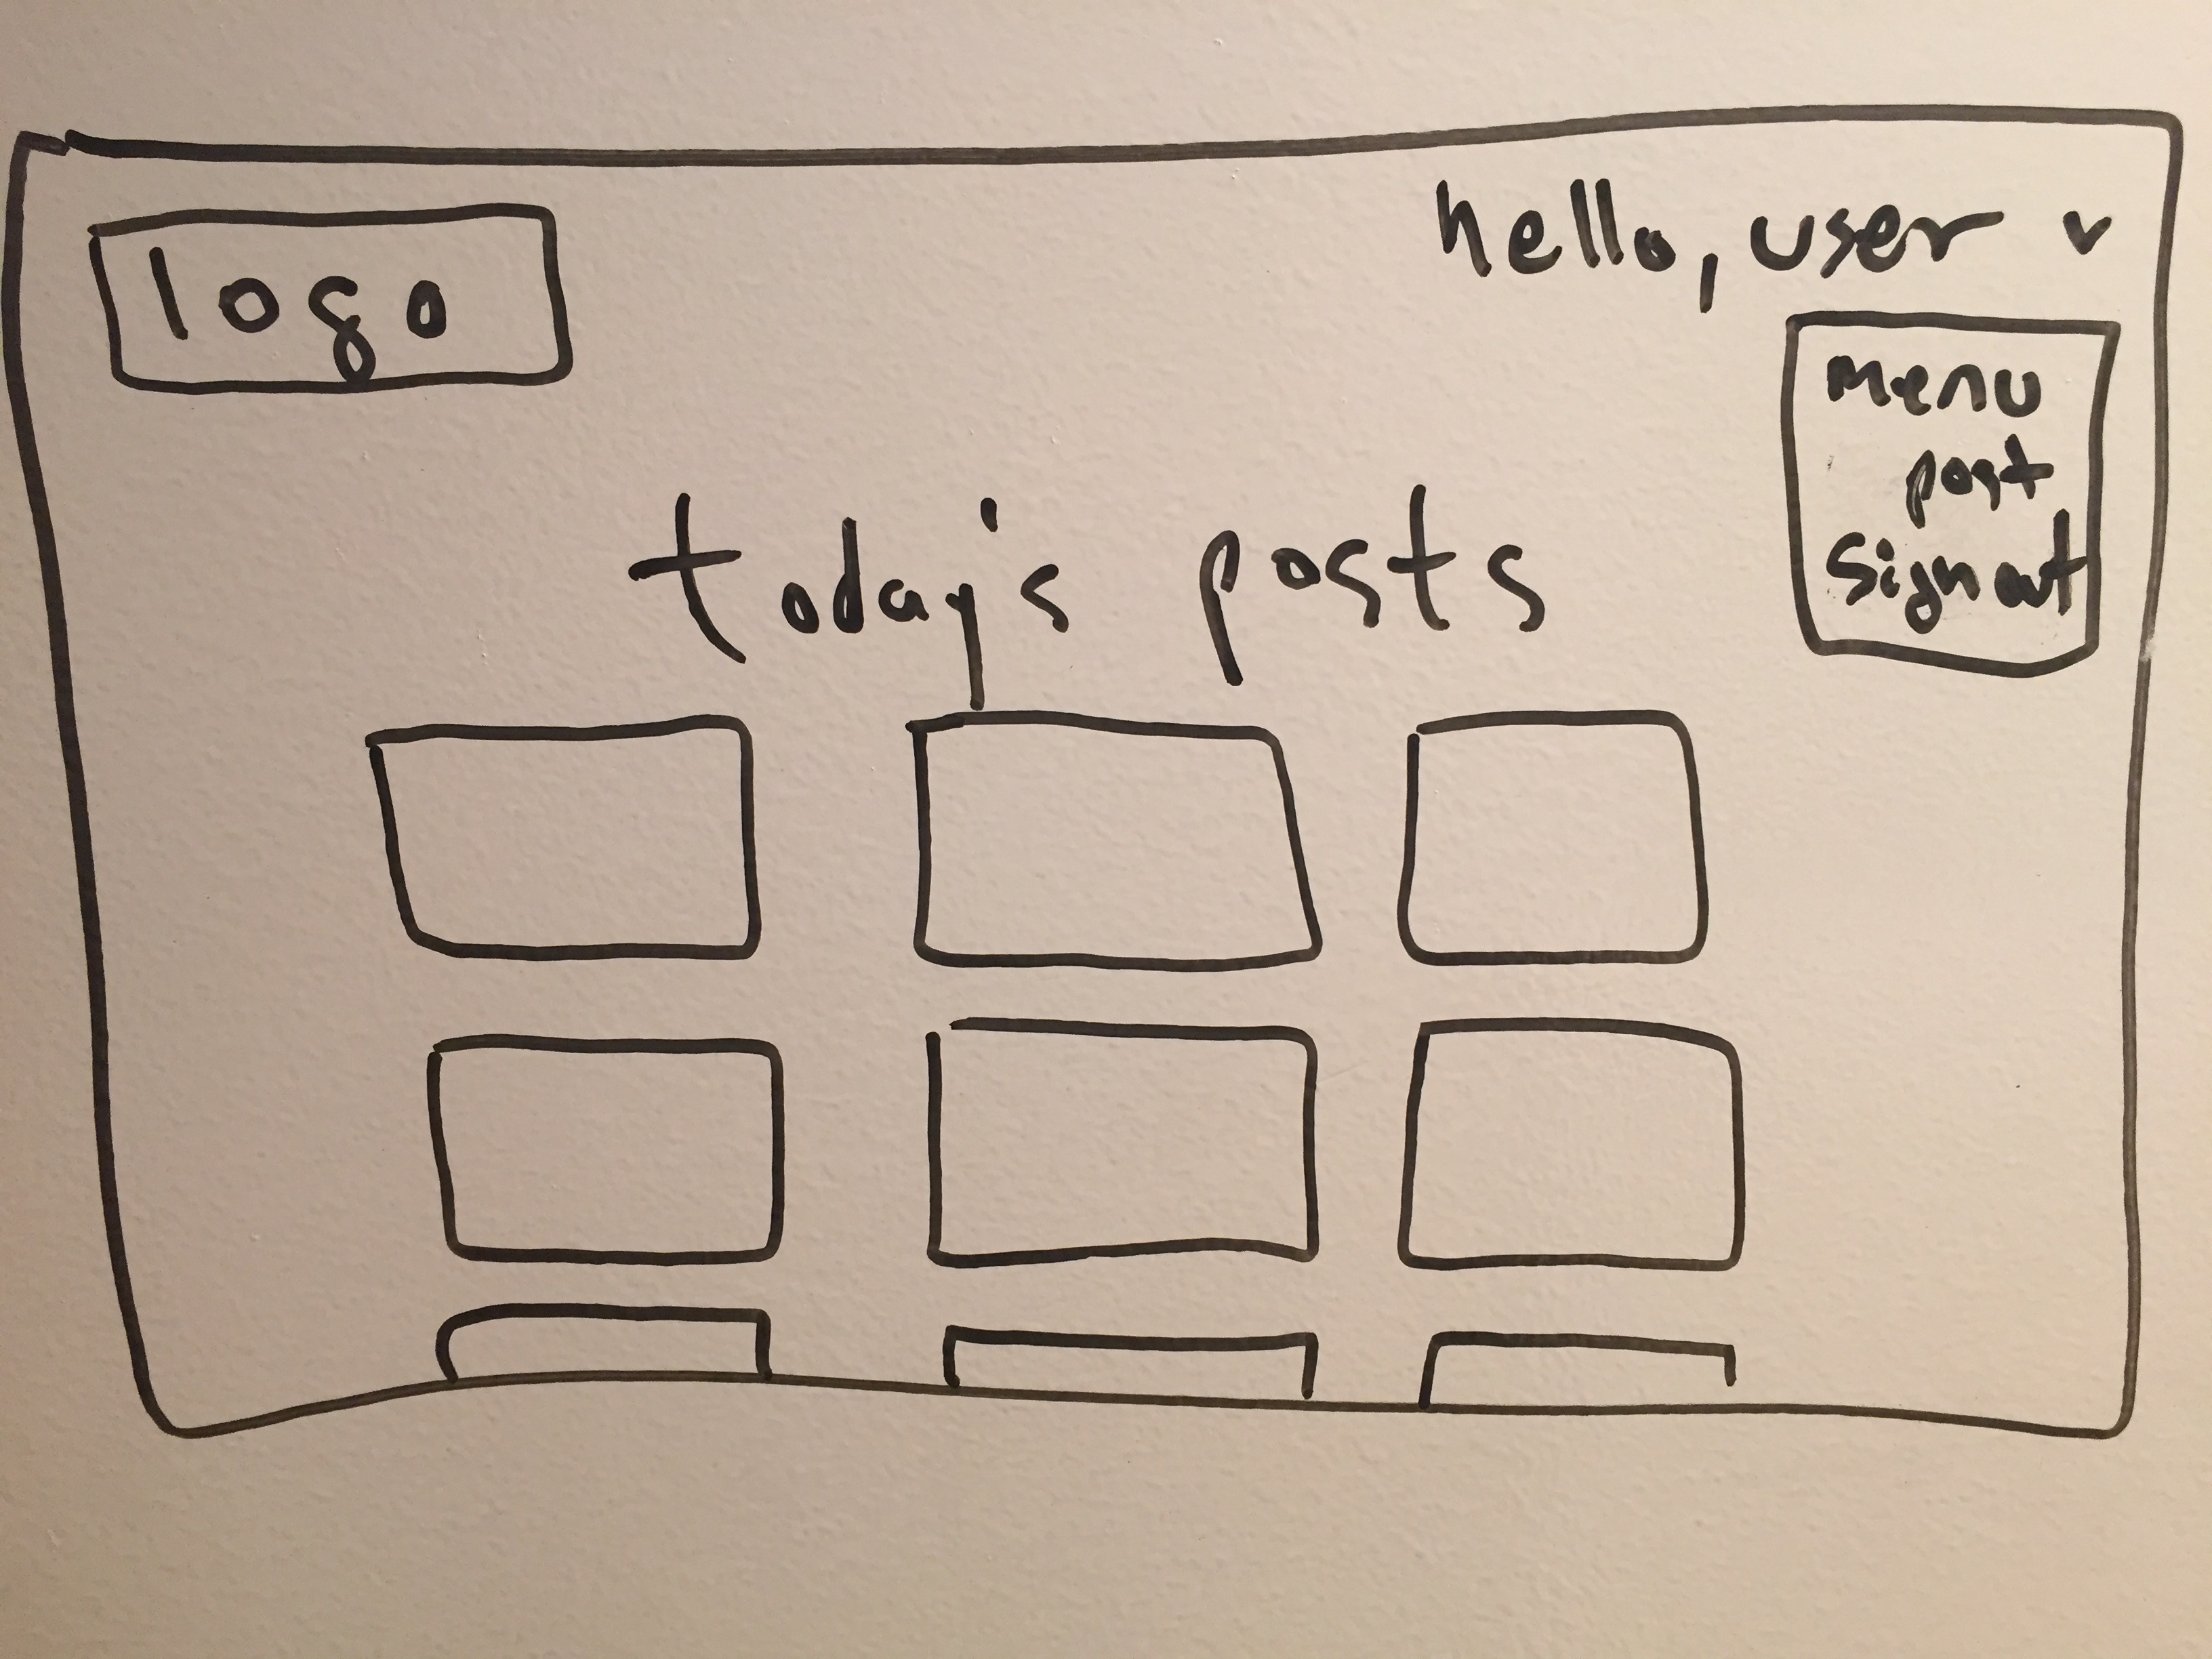 logo
hello, user
menu
post
sign out
today's posts